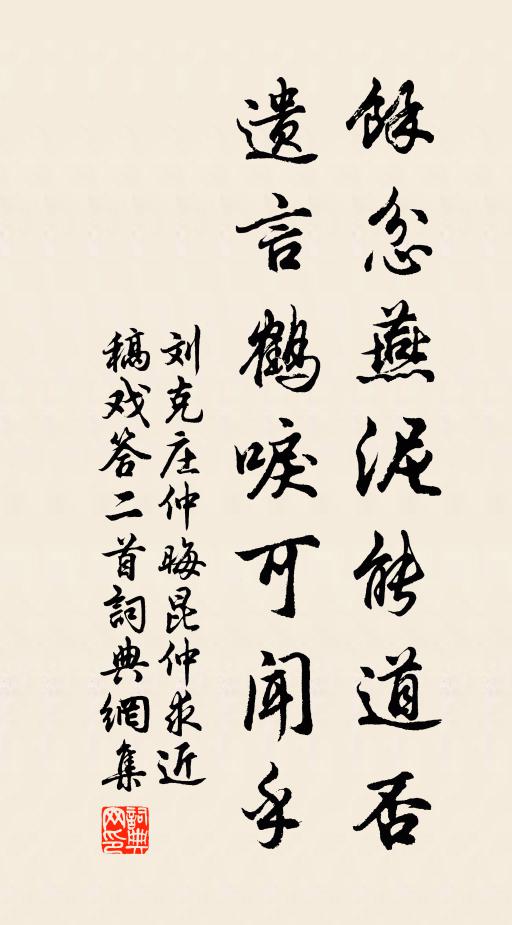 餘忿燕泥能道否
遗言鶴唳可闻乎
刘克庄仲晦昆仲求近
稿戏答二首詞典網集
詞典
网印